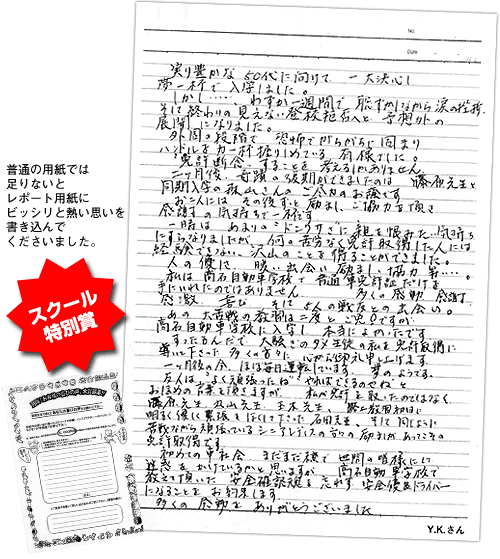 普通の用紙では
足りないと
レポート用紙に
ビッシリと熱い思いを
書き込んで
くださいました。
スクール
特別賞
No.
Date
実り豊かな50代に向けて 一大決心し
夢一杯で入学しました。
しかし……、わずか一週間で 恥ずかしながら涙の挫折、
そして終わりの見えない登校拒否へと 予想外の
展開になりました。
外周の段階で 恐怖でがちがちに固まり
ハンドルを力一杯握りしめている 有様でした。
免許断念…することを考える
二ヶ月後、奇跡の復期ができましたのは 藤原先生と
同期入学の秋山さんのご尽力のお陰です
お二人には その後ずっと励まし、ご協力を頂き
感謝の気持ちで一杯です
一時は あまりの
にすらなりましたが、何の苦労なく免許取得した人には
経験できない、沢山のことを得ることができました。
人の優しさ 暖い出会い 励まし、協力 等……。
私は 高石自動車学校で 普通車免許証だけを
手にいれたのではありません 多くの感動 感謝
喜び そして 人の戦友との出会い。
あの 大苦戦の教習は二度と ご免ですが、
高石自動車学校に入学し 本当によかったです
導いて下さった 多くの方々に 心から御礼申し上げます
一ヶ月後の今、ほぼ毎日運転しています。夢のようです。
友人は、よく頑張ったね やればできるのせね と
おほめの言葉を頂きますが、 私が免許を取ったのではなく、
藤原先生 丸山先生 玉木先生、
明るく優しく緊張をほぐして下さった 石田先生、そして 同じように
苦戦ながら頑張っているシニア、レディスの方々の励ましがあってこその
免許取得です。
初めての車社会、まだまだ未熟で 世間の皆様に
迷惑をかけているかと思いますが、高石自動車学校で
教えて頂いた 安全確認を忘れず 安全優良ドライバー
になることを お約束します
多くの 感動を ありがとうございました
Y.K.さん